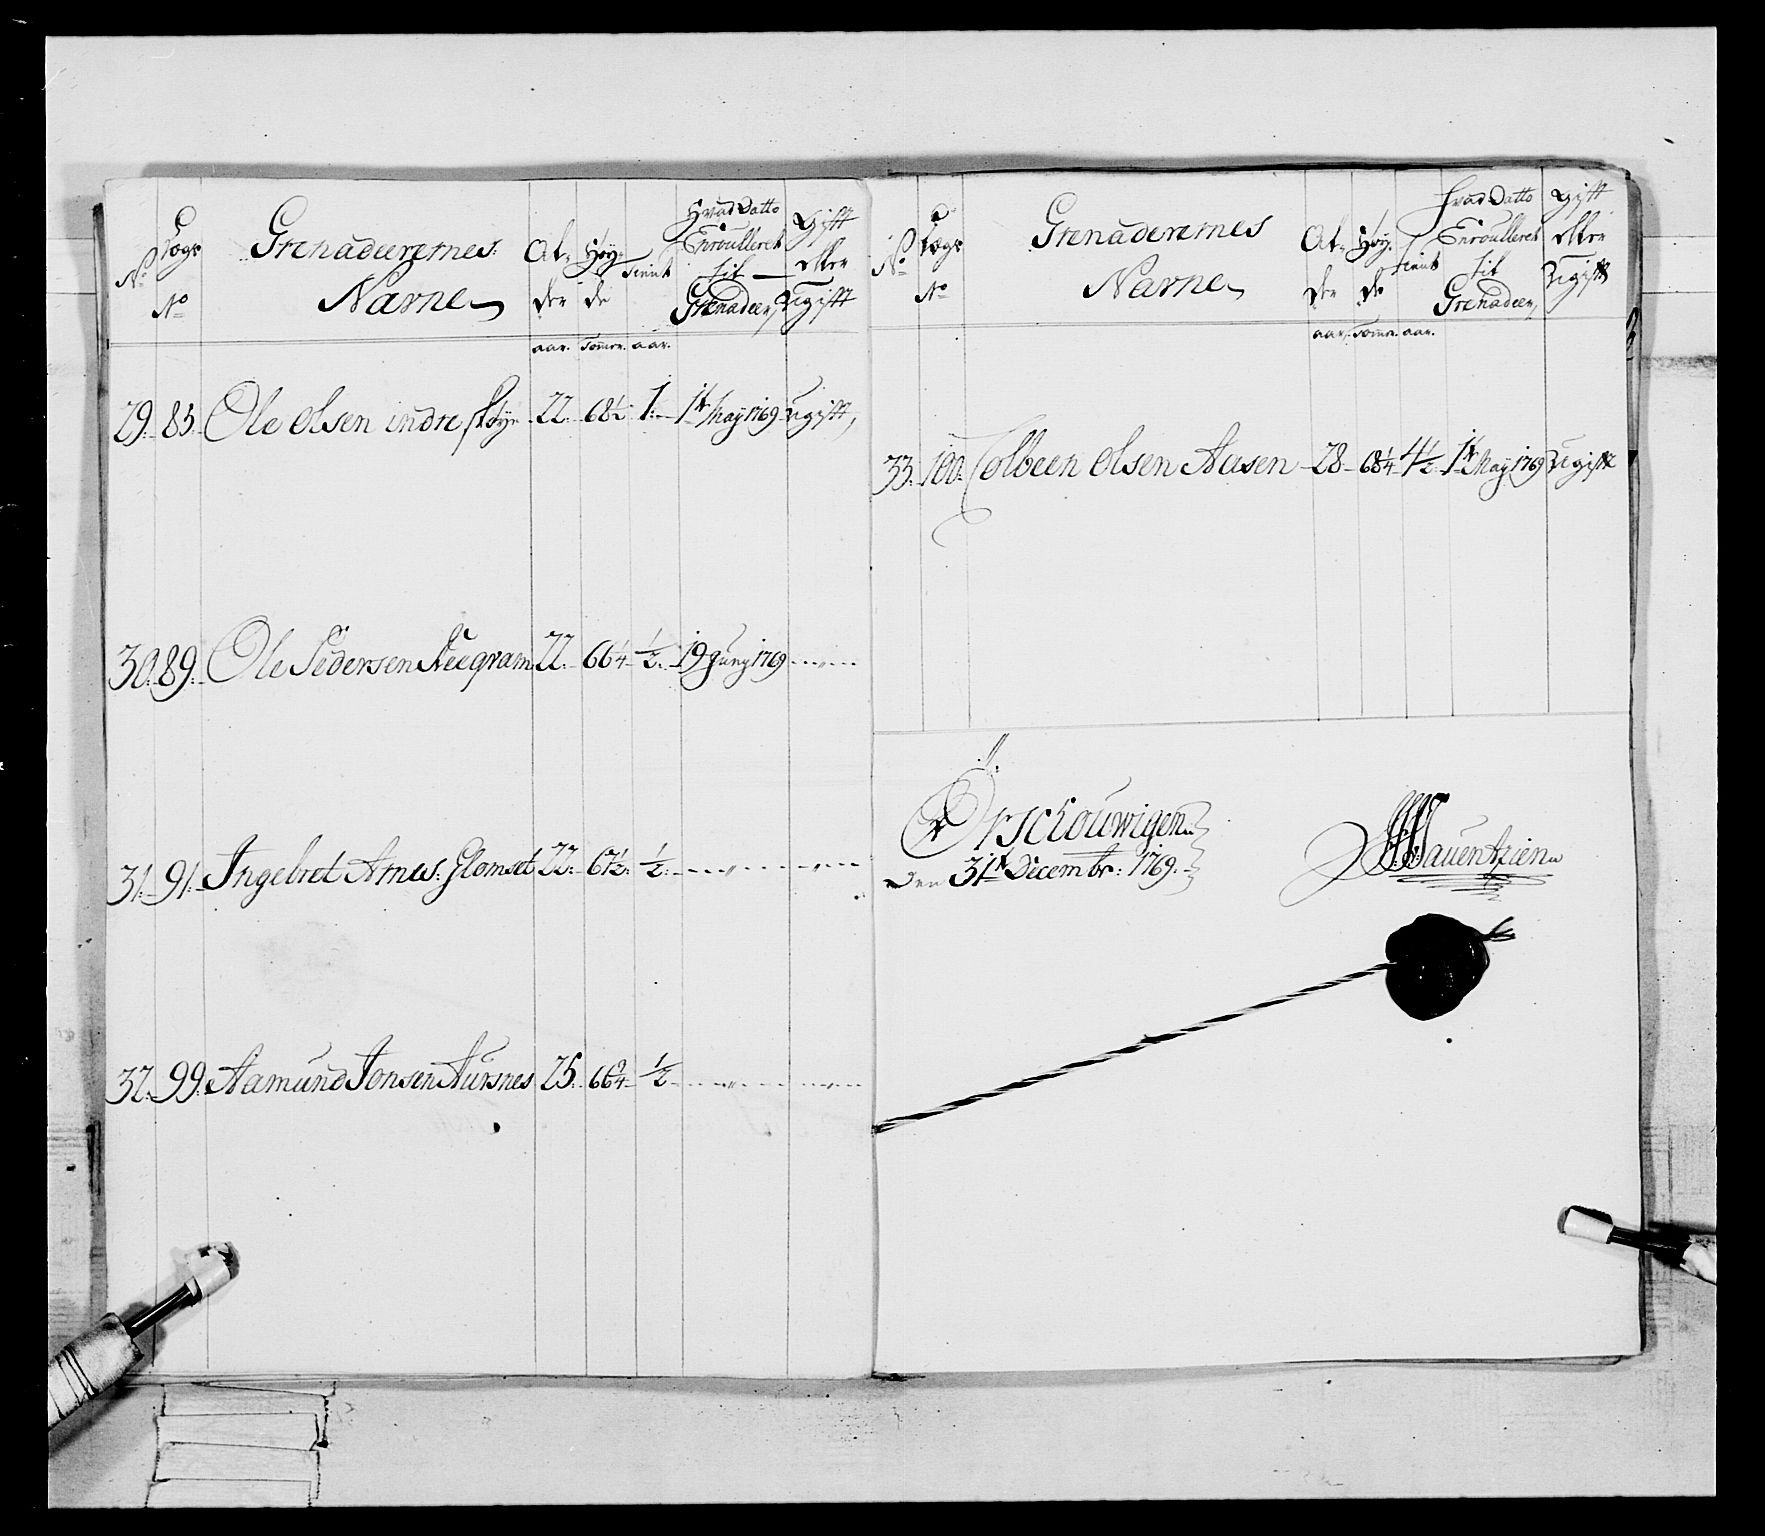 No
Lægs No
Grenadeerernes Navne
Al-der
Høy-de
Tient
Hvad Datto Enroulleret til Grenadeer
Gift eller Ugift
aar. Tommer. aar.
29. 83. Ole Olsen indre 22. 68½ 1. 1te May 1769 Ugift,
30. 89. Ole Pedersen Neegram 22. 66¼ ½. 19 Juny 1769
31. 91. Ingebret Arnes: Glomset 22. 67½. ½.
32. 99. Aamund Jonsen Aursnes 25. 66¾ ½
No
Lægs No
Grenaderernes Navne
Al-der
Høy-de
Tient
Hvad Datto Enroulleret til Grenadeer,
Gift eller Ugift
aar. Tommer. aar.
33. 100. Colbeen Olsen Aasen 28 68¼ 4½ 1te May 1769 Ugift
Ørschouwigen
Den 31te Decembr: 1769.